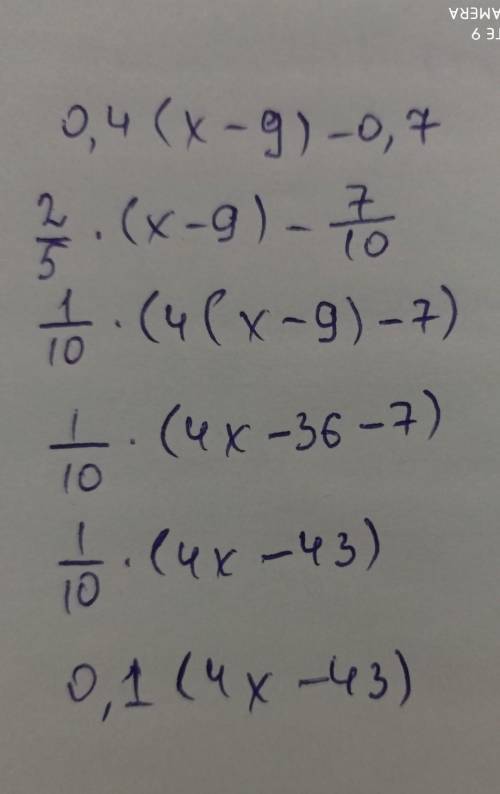 0,4(x-9)-0,7
2/5·(x-9)-7/10
1/10·(4(x-9)-7)
1/10·(4x-36-7)
1/10·(4x-43)
0,1(4x-43)